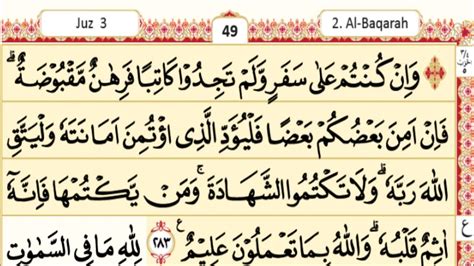 Juz 3 49 2. Al-Baqarah
وَاِنْ كُنْتُمْ عَلٰى سَفَرٍ وَّلَمْ تَجِدُوْا كَاتِبًا فَرِهٰنٌ مَّقْبُوْضَةٌ ۗ
فَاِنْ اَمِنَ بَعْضُكُمْ بَعْضًا فَلْيُؤَدِّ الَّذِى اؤْتُمِنَ اَمَانَتَهٗ وَلْيَتَّقِ
اللّٰهَ رَبَّهٗ ۗ وَلَا تَكْتُمُوا الشَّهَادَةَ ۚ وَمَنْ يَّكْتُمْهَا فَاِنَّهٗٓ
اٰثِمٌ قَلْبُهٗ ۗ وَاللّٰهُ بِمَا تَعْمَلُوْنَ عَلِيْمٌ ࣖ ٢٨٣ لِلّٰهِ مَا فِى السَّمٰوٰتِ
ع